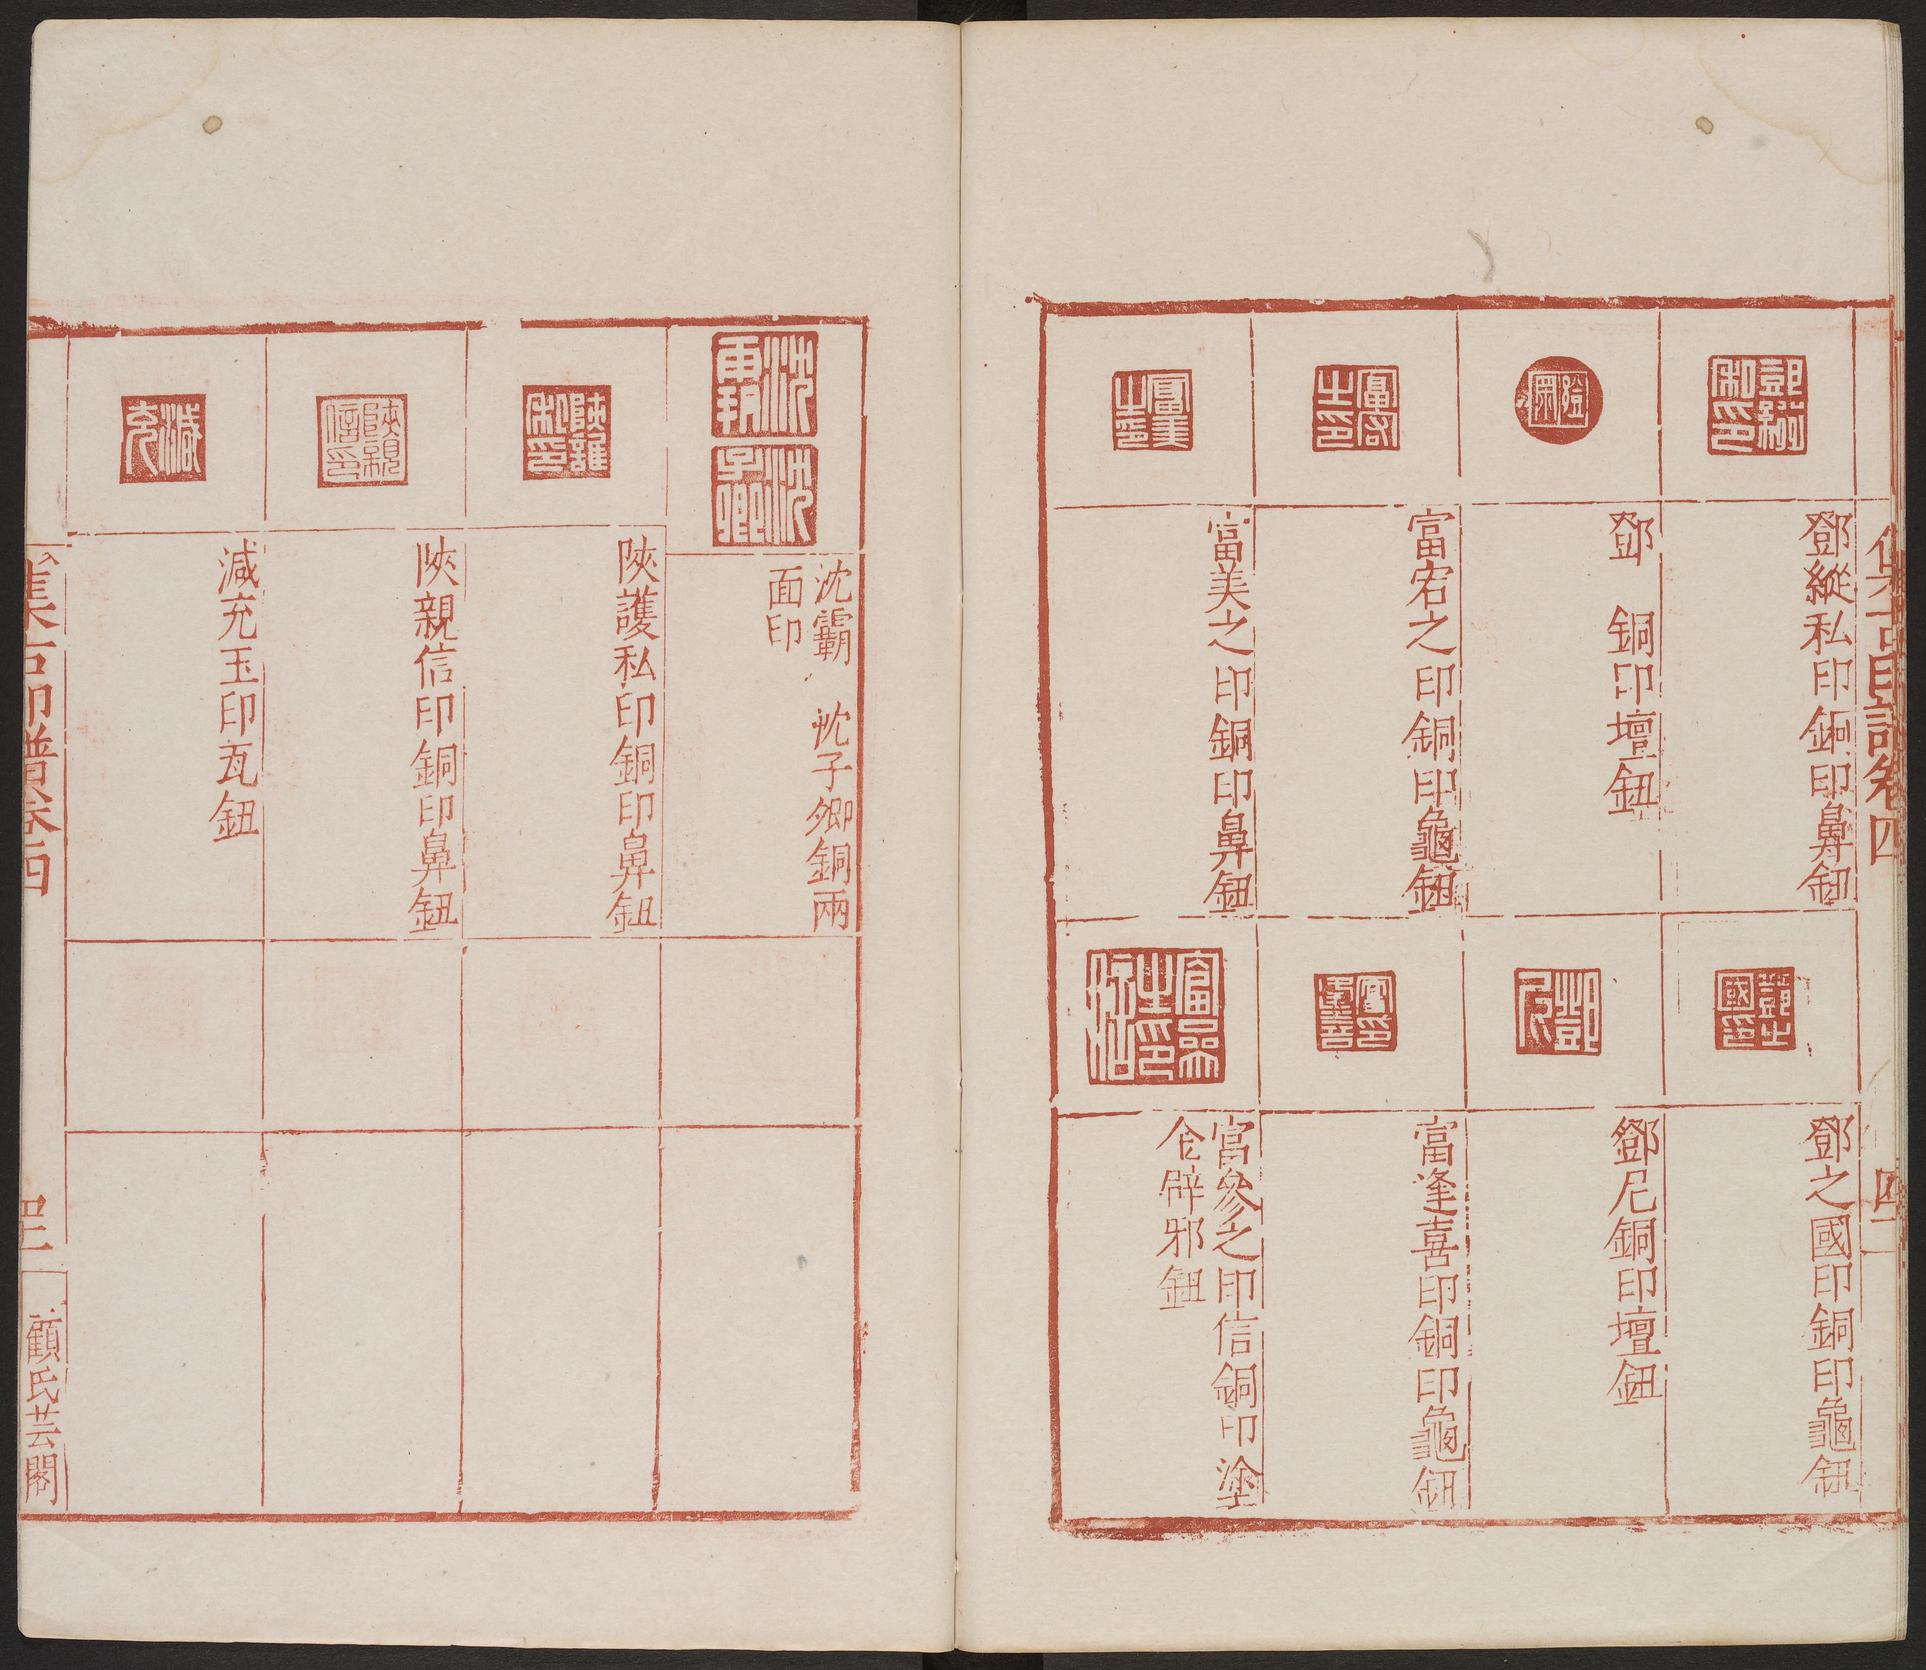 集古印譜卷四
鄧縱私印銅印鼻鈕
鄧 銅印壇鈕
富宕之印銅印龜鈕
富美之印銅印鼻鈕
鄧之國印銅印龜鈕
鄧尼銅印壇鈕
富逢喜印銅印龜鈕
富參之印信銅印塗
仝辟邪鈕
沈霸 沈子卿銅兩
面印
陝護私印銅印鼻鈕
陝親信印銅印鼻鈕
減充玉印瓦鈕
集古印譜卷四
顧氏芸閣